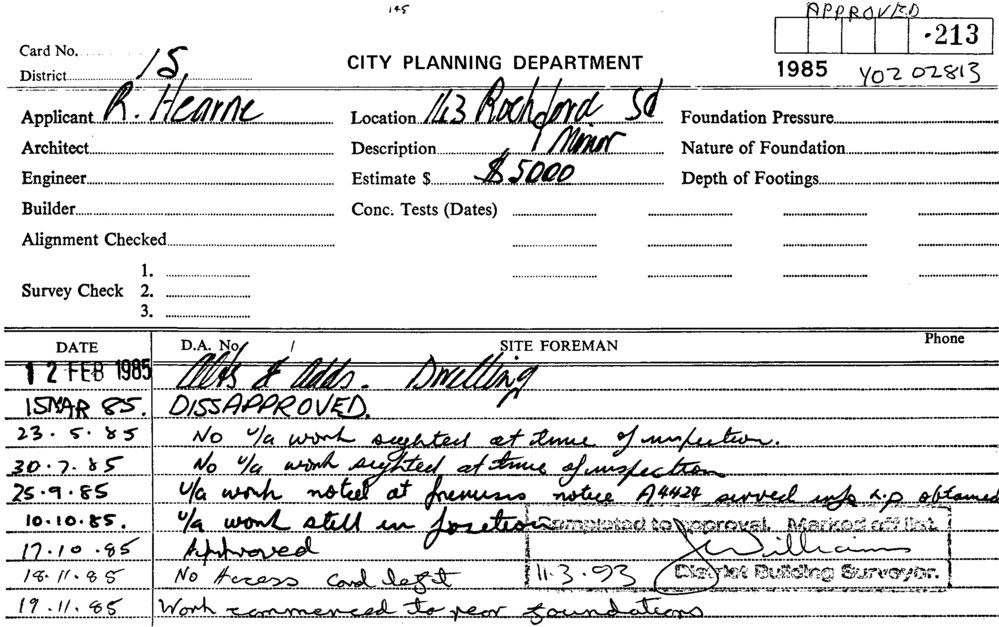 145
APPROVED
.213
1985 Y02 02813
Card No.
District 15
CITY PLANNING DEPARTMENT
Applicant R. Hearne Location 163 Rochford Sd Foundation Pressure
Architect Description Minor Nature of Foundation
Engineer Estimate $ $5000 Depth of Footings
Builder Conc. Tests (Dates)
Alignment Checked
1.
Survey Check 2.
3.
DATE D.A. No / SITE FOREMAN Phone
12 FEB 1985 Alts & Adds. Dwelling
15 MAR 85. DISSAPPROVED.
23.5.85 No u/a work sighted at time of inspection.
30.7.85 No u/a work sighted at time of inspection
25.9.85 u/a work noted at premises notice A4424 served info obtained
10.10.85. u/a work still in position
Completed to approval. Marked off list.
17.10.85 Approved
JWilliams
18.11.85 No Access card left
11.3.93 District Building Surveyor.
19.11.85 Work commenced to rear foundations